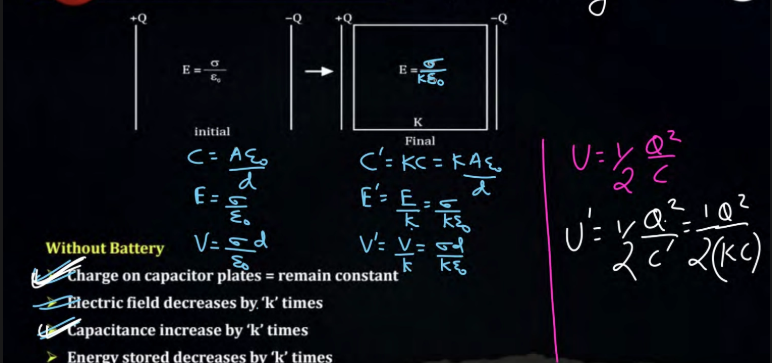 +Q -Q +Q -Q
E = σ/ε₀ E = σ/Kε₀
K
initial Final
C = Aε₀/d C' = KC = KAε₀/d
E = σ/ε₀ E' = E/K = σ/Kε₀
V = σd/ε₀ V' = V/K = σd/Kε₀
U = 1/2 Q²/C
U' = 1/2 Q²/C' = 1Q²/2(KC)
Without Battery
Charge on capacitor plates = remain constant
Electric field decreases by 'k' times
Capacitance increase by 'k' times
➤ Energy stored decreases by 'k' times